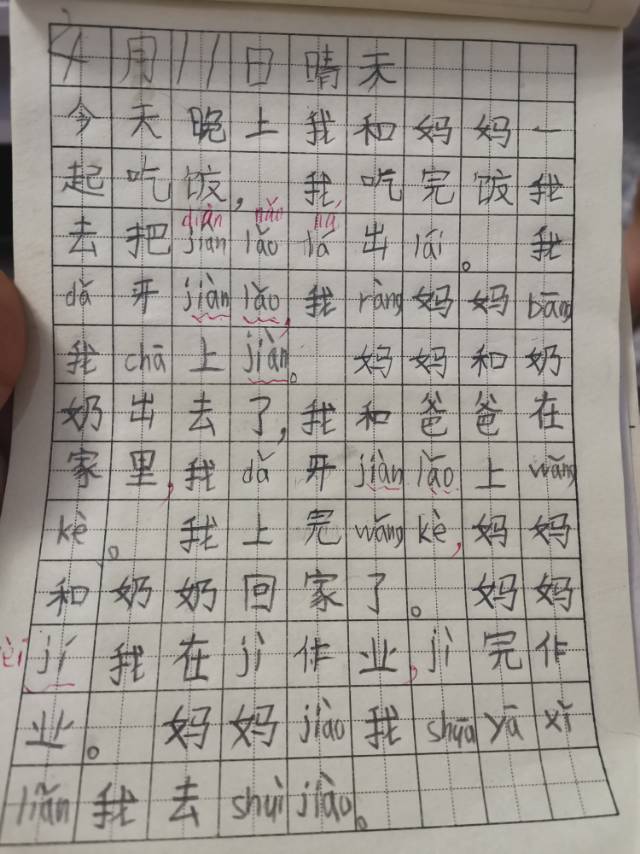 4月11日晴天
今天晚上我和妈妈一
起吃饭,我吃完饭我
diàn nǎo ná
去把jiàn lǎo lá出lái。我
dǎ开jiàn lǎo,我ràng妈妈bāng
我chā上jiàn。妈妈和奶
奶出去了,我和爸爸在
家里,我dǎ开jiàn lǎo上wǎng
kè。我上完wǎng kè,妈妈
和奶奶回家了。妈妈
jí我在jì作业,jì完作
业。妈妈jiào我shuā yā xǐ
liǎn我去shuì jiào。